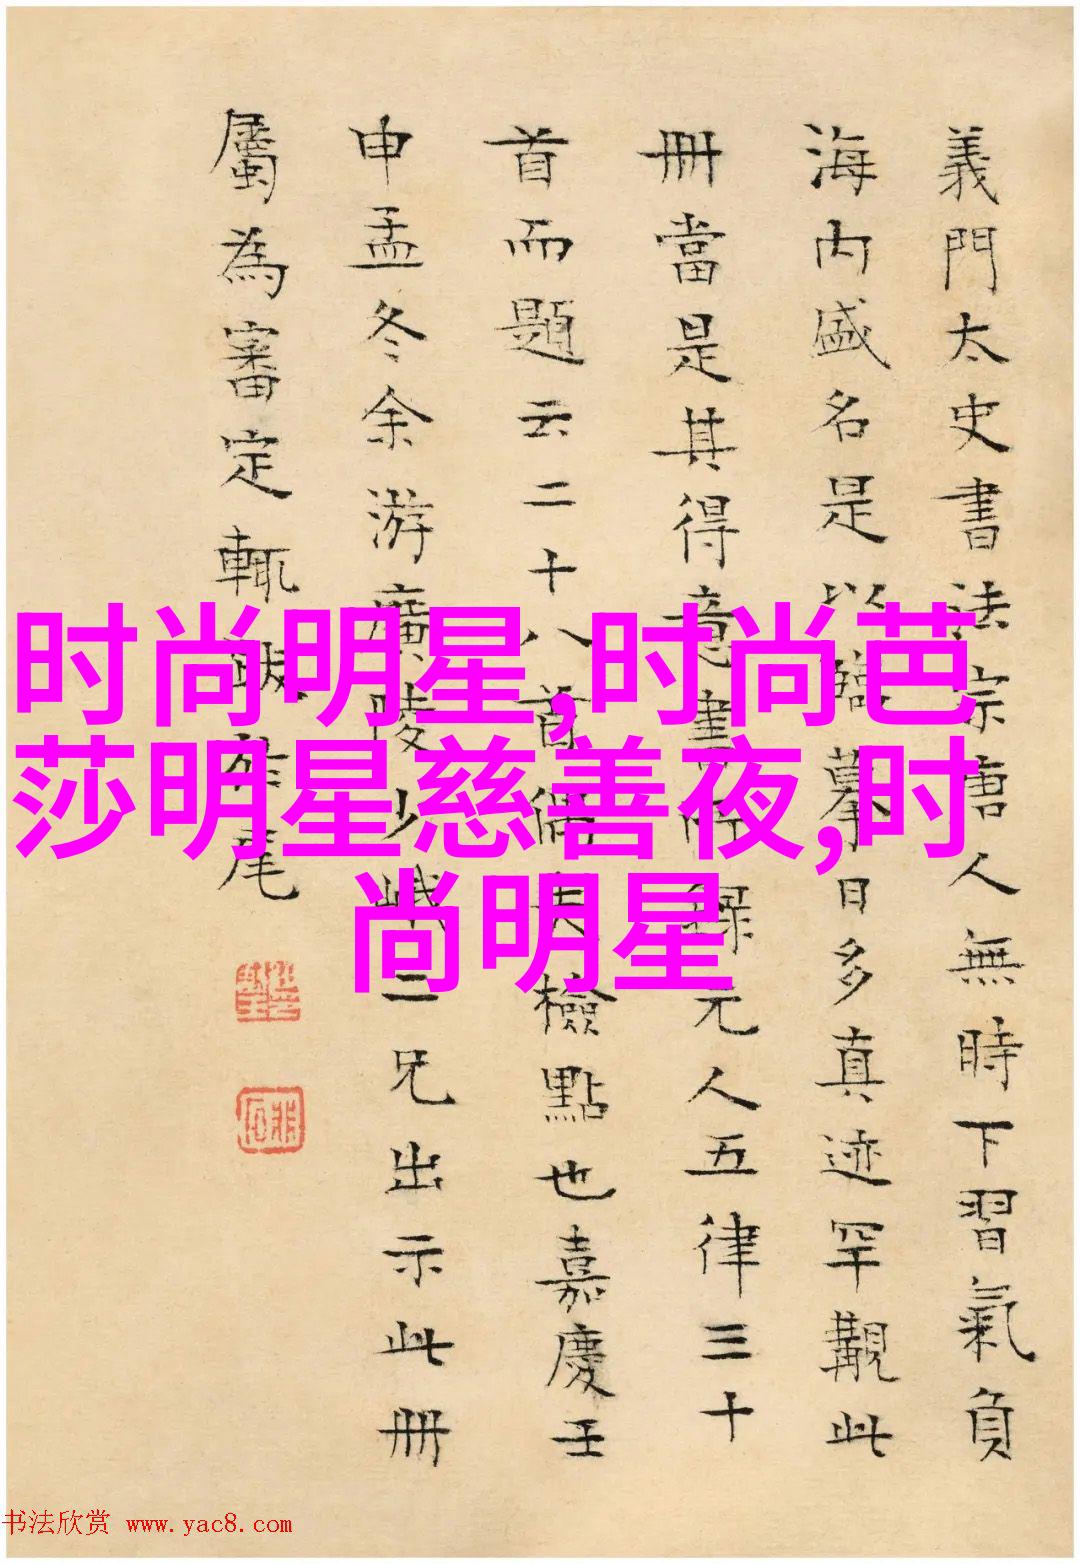 義門太史書法宗唐人無時下習氣負
海内盛名是以臨摹日多真迹罕觏此
冊當是其得意書所錄元人五律三十
首而題云二十八首偶失檢點也嘉慶壬
申孟冬余游廣陵少峨二兄出示此冊
屬為審定輒跋於尾
时尚明星,时尚芭
莎明星慈善夜,时
尚明星
书法欣赏 www.yac8.com